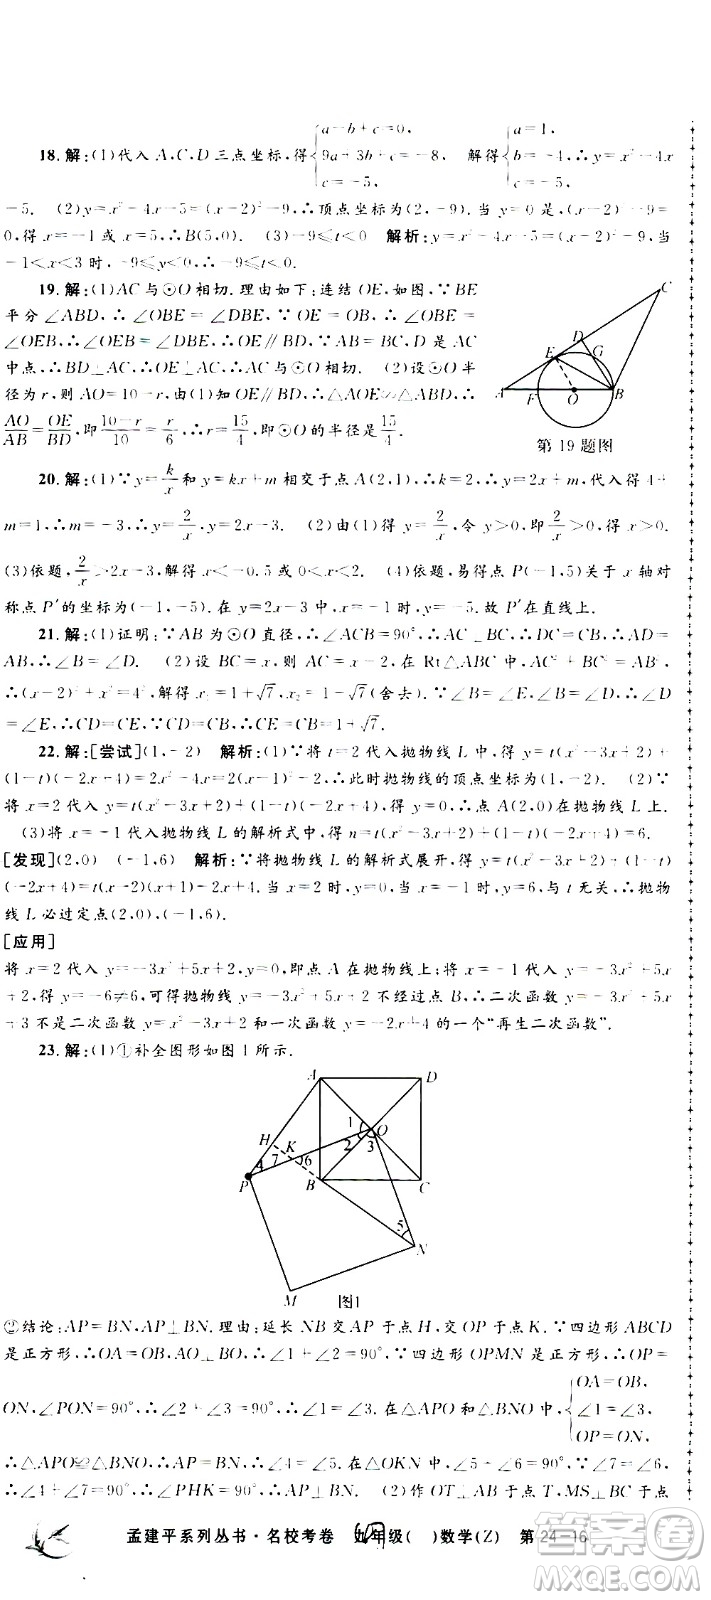 18.解:(1)代入A,C,D三点坐标,得{a-b+c=0, 9a+3b+c=-8, c=-5, 解得{a=1, b=-4, c=-5, ∴y=x²-4x
-5. (2)y=x²-4x-5=(x-2)²-9,∴顶点坐标为(2,-9).当y=0,则(x-2)²-9=
0,得x=-1或x=5,∴B(5,0). (3)-9≤t<0 解析:y=x²-4x-5=(x-2)²-9,∴当
-1<x<3时,-9≤y<0,∴-9≤t<0.
19.解:(1)AC与⊙O相切.理由如下:连结OE,如图.∵BE
平分∠ABD,∴∠OBE=∠DBE.∵OE=OB,∴∠OBE=
∠OEB,∴∠OEB=∠DBE,∴OE∥BD.∵AB=BC,D是AC
中点,∴BD⊥AC,∴OE⊥AC,∴AC与⊙O相切. (2)设⊙O半
径为r,则AO=10-r,由(1)知OE∥BD,∴△AOE∽△ABD,∴
AO/AB=OE/BD,即(10-r)/10=r/6,∴r=15/4,即⊙O的半径是15/4.
A B C D E F G O
第19题图
20.解:(1)∵y=k/x和y=kx+m相交于点A(2,1),∴k=2,∴y=2x+m,代入得4+
m=1,∴m=-3,∴y=2/x,y=2x-3. (2)由(1)得y=2/x,令y>0,即2/x>0,得x>0.
(3)依题,2/x>2x-3,解得x<-0.5或0<x<2. (4)依题,得点P(-1,5)关于x轴对
称点P′的坐标为(-1,-5).在y=2x-3中,当x=-1时,y=-5.故P′在直线上.
21.解:(1)证明:∵AB为⊙O直径,∴∠ACB=90°,∴AC⊥BC.∵DC=CB,∴AD=
AB,∴∠B=∠D. (2)设BC=x,则AC=x-2,在Rt△ABC中,∵AC²+BC²=AB²,
∴(x-2)²+x²=4²,解得x₁=1+√7,x₂=1-√7(舍去).∵∠B=∠E,∠B=∠D,∴∠D
=∠E,∴CD=CE.∵CD=CB,∴CE=CB=1+√7.
22.解:[尝试](1,-2) 解析:(1)∵将t=2代入抛物线L中,得y=t(x²-3x+2)+
(1-t)(-2x+4)=2x²-4x=2(x-1)²-2,∴此时抛物线的顶点坐标为(1,-2). (2)∵将x=2
代入y=t(x²-3x+2)+(1-t)(-2x+4),得y=0,∴点A(2,0)在抛物线L上.
(3)将x=-1代入抛物线L的解析式中,得n=t(x²-3x+2)+(1-t)(-2x+4)=6.
[发现](2,0) (-1,6) 解析:∵将抛物线L的解析式展开,得y=t(x²-3x+2)+(1-t)
(-2x+4)=t(x-2)(x+1)-2x+4,当x=2时,y=0,当x=-1时,y=6,与t无关,∴抛物
线L必过定点(2,0),(-1,6).
[应用]
将x=2代入y=-3x²+5x+2,y=0,即点A在抛物线上.将x=-1代入y=-3x²+5x+
2,得y=-6≠6,可得抛物线y=-3x²+5x+2不经过点B,∴二次函数y=-3x²+5x+2
不是二次函数y=x²-3x+2和一次函数y=-2x+4的一个“再生二次函数”.
23.解:(1)①补全图形如图1所示.
A D H K O P B C N M 1 2 3 4 5 6 7
图1
②结论:AP=BN,AP⊥BN.理由:延长NB交AP于点H,交OP于点K.∵四边形ABCD
是正方形,∴OA=OB,AO⊥BO,∴∠1+∠2=90°.∵四边形OPMN是正方形,∴OP=
ON,∠PON=90°,∴∠2+∠3=90°,∴∠1=∠3.在△APO和△BNO中,{OA=OB, ∠1=∠3, OP=ON,
∴△APO≌△BNO,∴AP=BN,∴∠4=∠5.在△OKN中,∠5+∠6=90°.∵∠7=∠6,∴
∠4+∠7=90°,∴∠PHK=90°,∴AP⊥BN. (2)作OT⊥AB于点T,MS⊥BC于点
孟建平系列丛书·名校考卷 九年级( )数学(Z) 第24-16